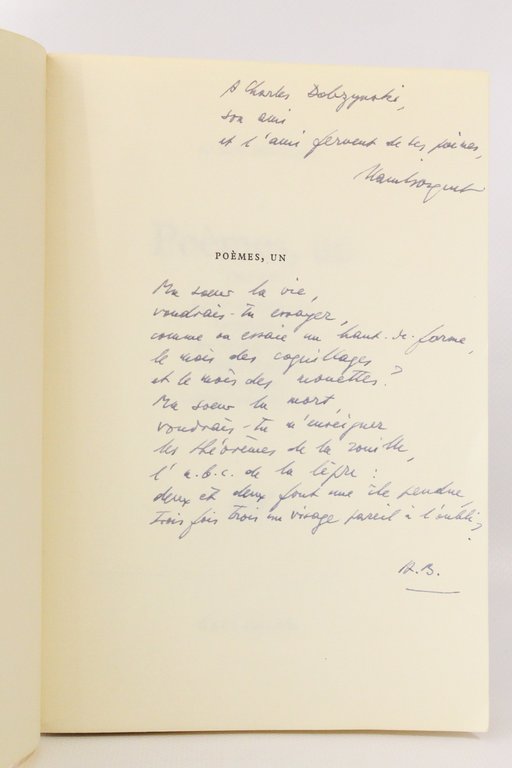 A Charles Dobzynski,
son ami
et l'ami fervent de ses poèmes,
Alain Bosquet
POÈMES, UN
Ma soeur la vie,
voudrais-tu essayer,
comme on essaie un haut-de-forme,
le mois des coquillages
et le mois des mouettes ?
Ma soeur la mort,
voudrais-tu m'enseigner
les théorèmes de la rouille,
l'a.b.c. de la lèpre :
deux et deux font une île pendue,
trois fois trois un visage pareil à l'oubli ?
A.B.